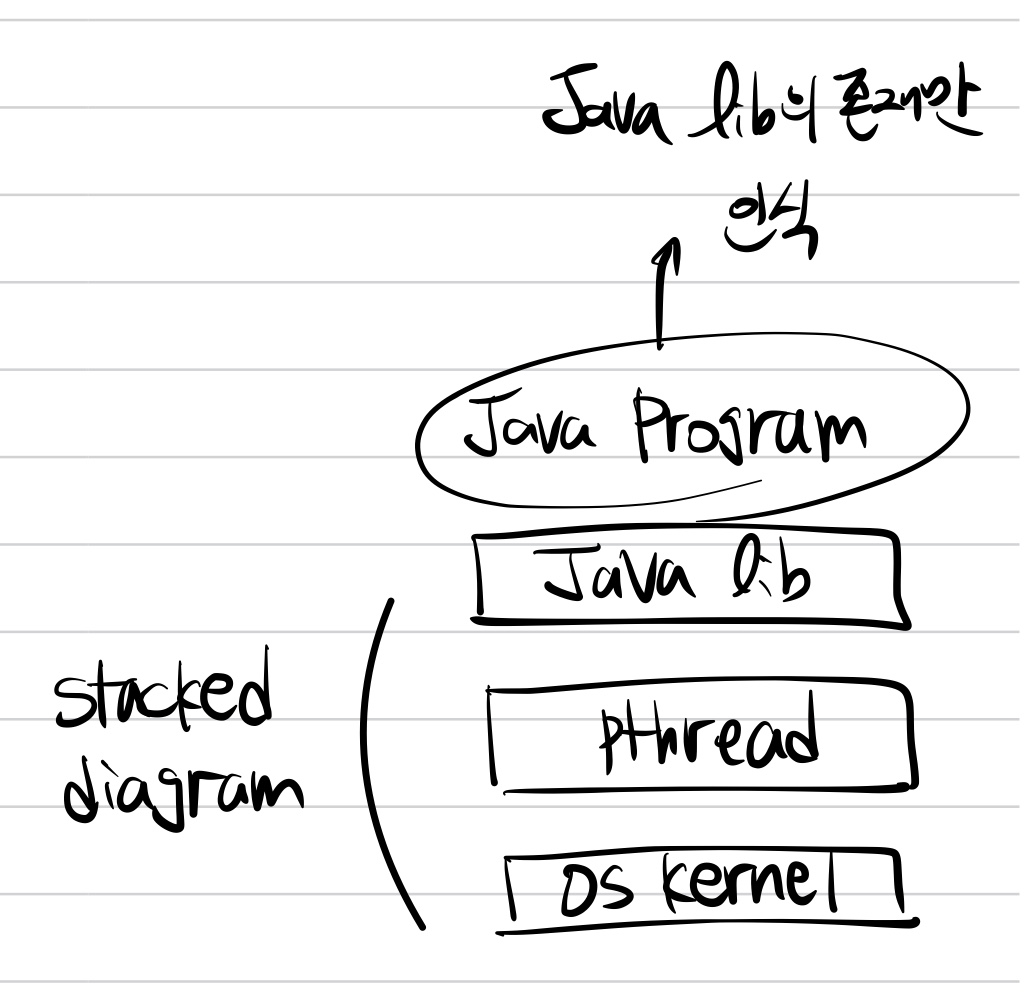 Java lib의 존재만
인식
Java Program
Java lib
stacked
diagram
pthread
OS kernel